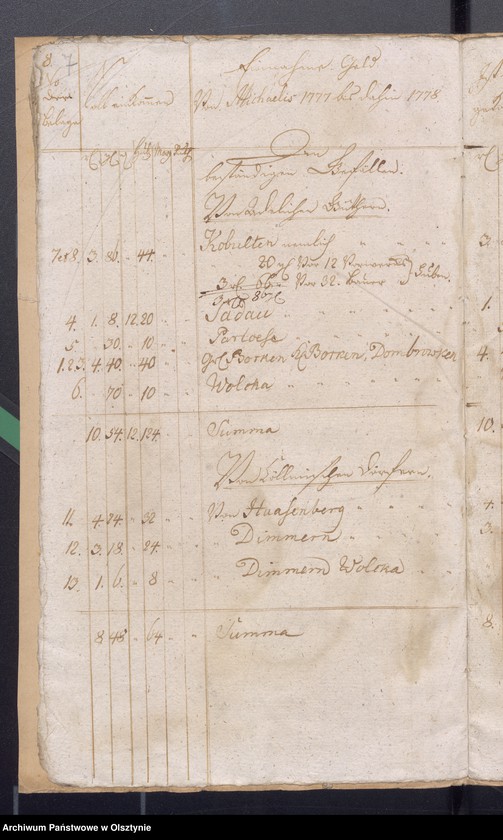 8.
Einnahme Geld
No
belage
Soll einkommen
Von Michaelis 1777 bis dahin 1778
Den
beständigen Gefällen.
Von Adelichen Güthern.
7et8. 3. 86. " 44 " " Kobulten nemlich " " "
20 Vor 12
3 rl. 66. Vor 32. Bauer Huben.
4. 1. 8. 12. 20 " " Sadau " " "
5 " 30. " 10 " " Parloese " " "
1.2.3. 4. 40. " 40 " " Gr. Borken Kl. Borken, Dombrowken
6. " 70 " 10 " " Wolcka " " "
10. 54. 12. 124. " " Summa
Von Cöllmischen Dörfern.
11. 4. 74. " 32 " " Von Haasenberg " "
12. 3. 18. " 24. " " " Dimmern " " "
13. 1. 6. " 8 " " " Dimmern Wolcka " "
8 48 " 64 " " Summa
Archiwum Państwowe w Olsztynie